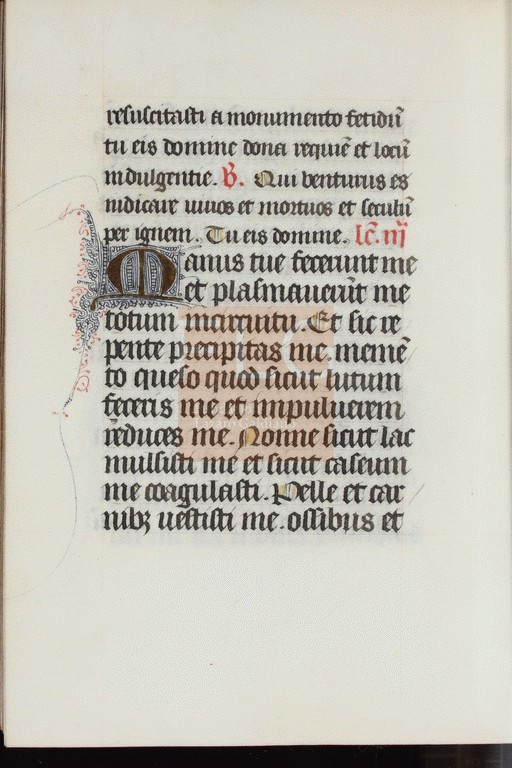 resuscitasti a monumento fetidū
tu eis domine dona requiē et locū
indulgentie. ℣. Qui venturus es
iudicare uiuos et mortuos et seculū
per ignem. Tu eis domine. lc̄. iij
Manus tue fecerunt me
et plasmauerūt me
totum incircuitu. Et sic re
pente precipitas me. memē
to queso quod sicut lutum
feceris me et inpuluerem
reduces me. Nonne sicut lac
mulsisti me et sicut caseum
me coagulasti. Pelle et car
nibꝫ uestisti me. ossibus et